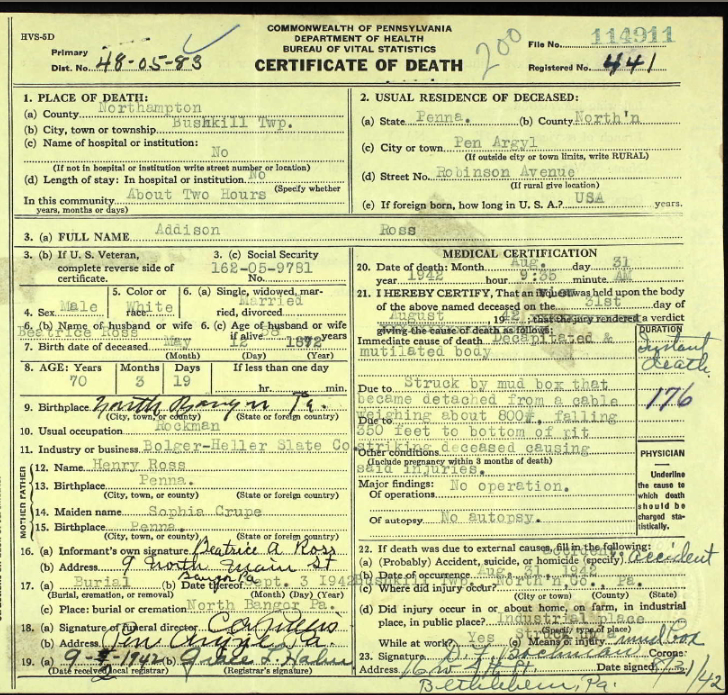 HVS-5D
COMMONWEALTH OF PENNSYLVANIA
DEPARTMENT OF HEALTH
BUREAU OF VITAL STATISTICS
CERTIFICATE OF DEATH
200
File No. 114911
Primary
Dist. No. 48-05-83
Registered No. 441
1. PLACE OF DEATH:
(a) County Northampton
(b) City, town or township Bushkill Twp.
(c) Name of hospital or institution:
No
(If not in hospital or institution write street number or location)
(d) Length of stay: In hospital or institution No
(Specify whether
In this community About Two Hours
years, months or days)
2. USUAL RESIDENCE OF DECEASED:
(a) State Penna. (b) County North'n
(c) City or town Pen Argyl
(If outside city or town limits, write RURAL)
(d) Street No. Robinson Avenue
(If rural give location)
(e) If foreign born, how long in U. S. A.? USA years.
3. (a) FULL NAME Addison Ross
3. (b) If U. S. Veteran, complete reverse side of certificate.
3. (c) Social Security No. 162-05-9781
4. Sex Male
5. Color or race White
6. (a) Single, widowed, married, divorced Married
6. (b) Name of husband or wife Beatrice Ross
6. (c) Age of husband or wife if alive 58 years
7. Birth date of deceased May 12 1872
(Month) (Day) (Year)
8. AGE: Years 70 Months 3 Days 19
If less than one day
hr. min.
9. Birthplace North Bangor Pa.
(City, town, or county) (State or foreign country)
10. Usual occupation Rockman
11. Industry or business Bolger-Heller Slate Co
FATHER
12. Name Henry Ross
13. Birthplace Penna.
(City, town, or county) (State or foreign country)
MOTHER
14. Maiden name Sophia Crupe
15. Birthplace Penna.
(City, town, or county) (State or foreign country)
16. (a) Informant's own signature Beatrice A Ross
(b) Address 9 North Main St
Bangor Pa
17. (a) Burial (b) Date thereof Sept. 3 1942
(Burial, cremation, or removal) (Month) (Day) (Year)
(c) Place: burial or cremation North Bangor Pa.
18. (a) Signature of funeral director
(b) Address Pen Argyl Pa.
19. (a) 9-3-1942 (b)
(Date received local registrar) (Registrar's signature)
MEDICAL CERTIFICATION
20. Date of death: Month Aug. day 31
year 1942 hour 9:35 minute AM
21. I HEREBY CERTIFY, That an view was held upon the body
of the above named deceased on the 31st day of
August 1942, that the jury rendered a verdict
giving the cause of death as follows:
Immediate cause of death Decapitated &
mutilated body
DURATION
Instant death
176
Due to Struck by mud box that
became detached from a cable
Due to weighing about 800#, falling
350 feet to bottom of pit
Other conditions striking deceased causing
(Include pregnancy within 3 months of death)
said injuries.
Major findings:
Of operations No operation.
Of autopsy No autopsy.
PHYSICIAN
Underline
the cause to
which death
should be
charged statistically.
22. If death was due to external causes, fill in the following:
(a) (Probably) Accident, suicide, or homicide (specify) accident
(b) Date of occurrence Aug. 31 1942
(c) Where did injury occur? Twp. North'n Co. Pa.
(City or town) (County) (State)
(d) Did injury occur in or about home, on farm, in industrial
place, in public place? Industrial place
(Specify type of place)
While at work? Yes (e) Means of injury Struck by mud box
23. Signature Coroner
Address Date signed 8/31/42
Bethlehem, Pa.